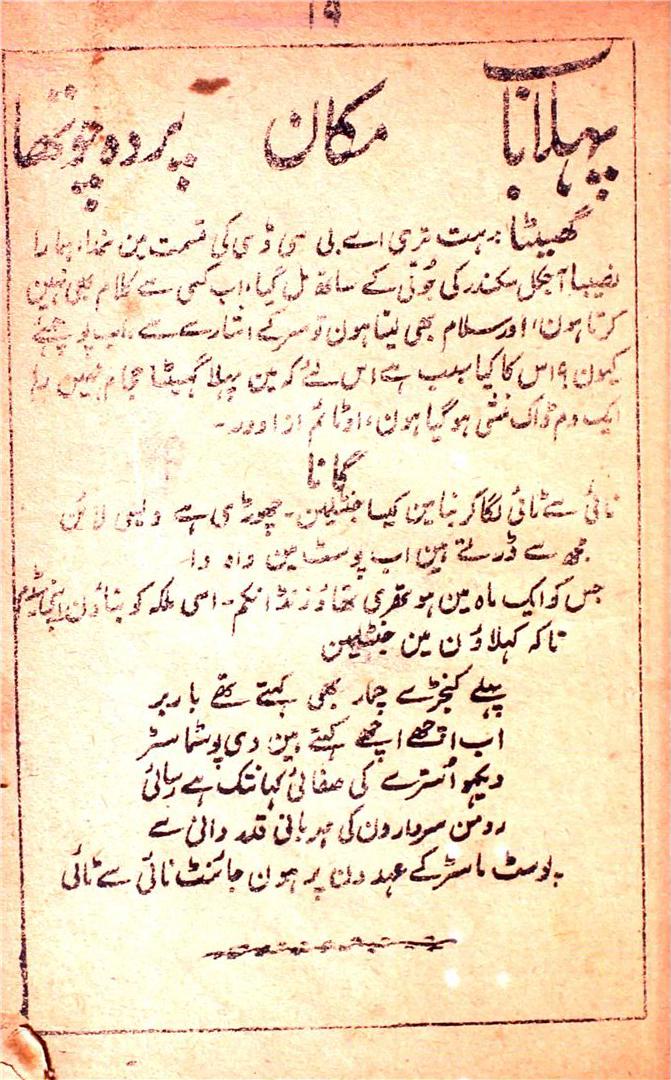 ۱۹
پہلا باب مکان پردہ چوتھا
گھیٹا :۔ ہت تری اے بی سی ڈی کی قسمت مین خدا ہمارا
نصیبا آجکل سکندر کی جُوتی کے ساتھ مل گیا، اب کسی سے کلام بھی نہین
کرتا ہون، اور سلام بھی لیتا ہون تو سر کے اشارے سے، اب پوچھئے
کیون ؟ اس کا کیا سبب ہے اس لئے کہ مین پہلا گھیٹا حجام نہین رہا
ایک دم ڈاک منشی ہو گیا ہون،
گانا
نائی سے ٹائی لگا کر بنا مین کیسا جنٹلمین۔ چھوڑی ہے دیسی لائن
مجھ سے ڈرتے ہین اب پوسٹ مین واہ وا
جس کو ایک ماہ مین ہو تھری تھاؤزنڈ انکم۔ اسی ملکہ کو بناؤن
تاکہ کہلاؤن مین جنٹلمین
پہلے کنجڑے چمار بھی کہتے تھے باربر
اب اچھے اچھے کہتے ہین دی پوسٹماسٹر
دیکھو اُسترے کی صفائی کہانتک ہے رسائی
رومن سردارون کی مہربانی قدردانی سے
پوسٹ ماسٹر کے عہدون پر ہون جائنٹ نائی سے ٹائی